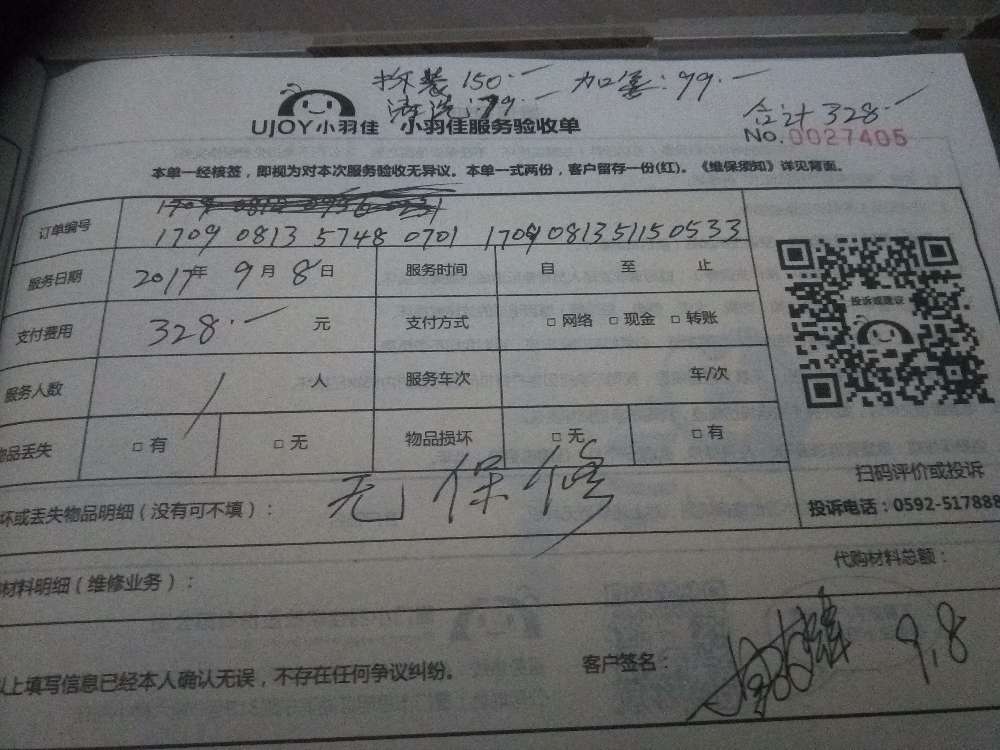 拆装150.— 加塞:99.—
清洗:79.—
合计328.—
UJOY小羽佳 小羽佳服务验收单
No.0027405
本单一经核签，即视为对本次服务验收无异议。本单一式两份，客户留存一份(红)。《维保须知》详见背面。
订单编号 1709 0813 5748 0701 1709 0813 5115 0533
服务日期 2017年 9月 8日 服务时间 自 至 止
投诉或建议
支付费用 328.— 元 支付方式 □ 网络 □ 现金 □ 转账
服务人数 1 人 服务车次 车/次
物品丢失 □ 有 □ 无 物品损坏 □ 无 □ 有
扫码评价或投诉
投诉电话：0592-517888
坏或丢失物品明细（没有可不填）： 无保修
材料明细（维修业务）： 代购材料总额：
以上填写信息已经本人确认无误，不存在任何争议纠纷。 客户签名： 9.8